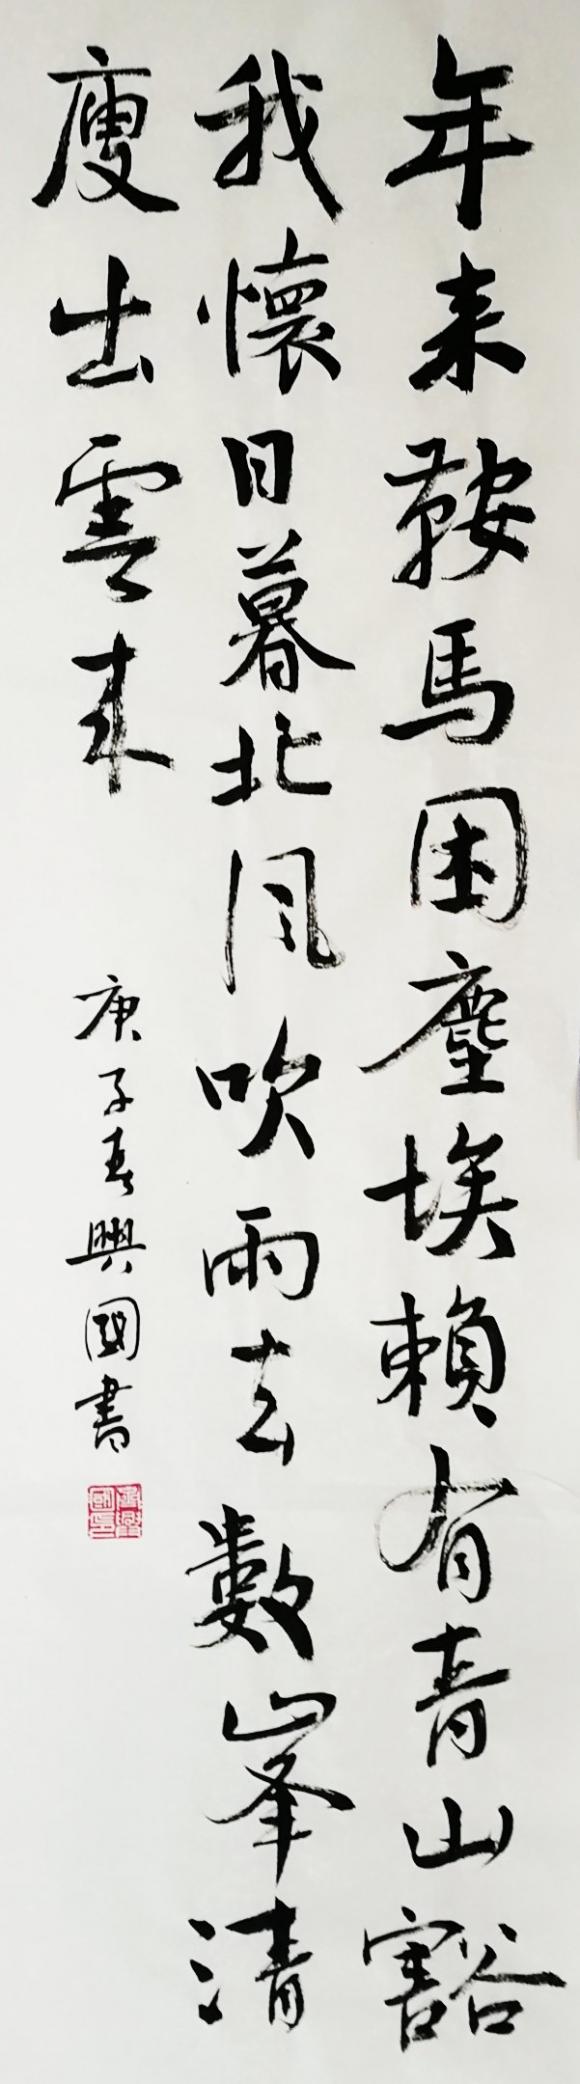 年来鞍馬困塵埃賴有青山豁
我懷日暮北风吹雨去數峯清
廋出雲来
庚子春興國書